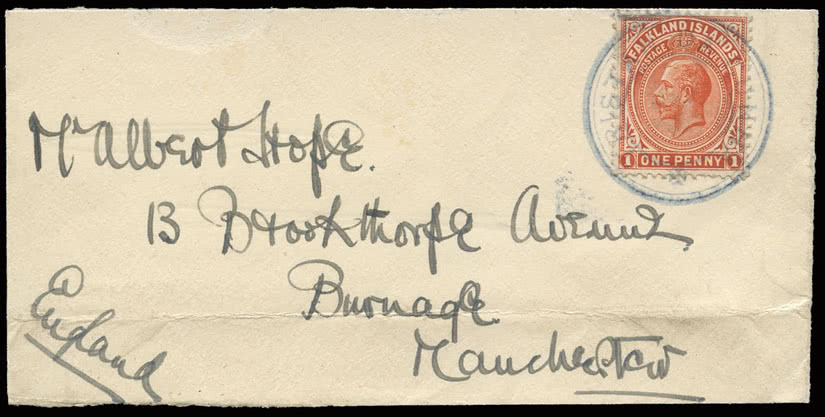 FALKLAND ISLANDS
POSTAGE REVENUE
1 ONE PENNY 1
Mr Albert Hope.
13 Brookthorpe Avenue
Burnage
Manchester
England